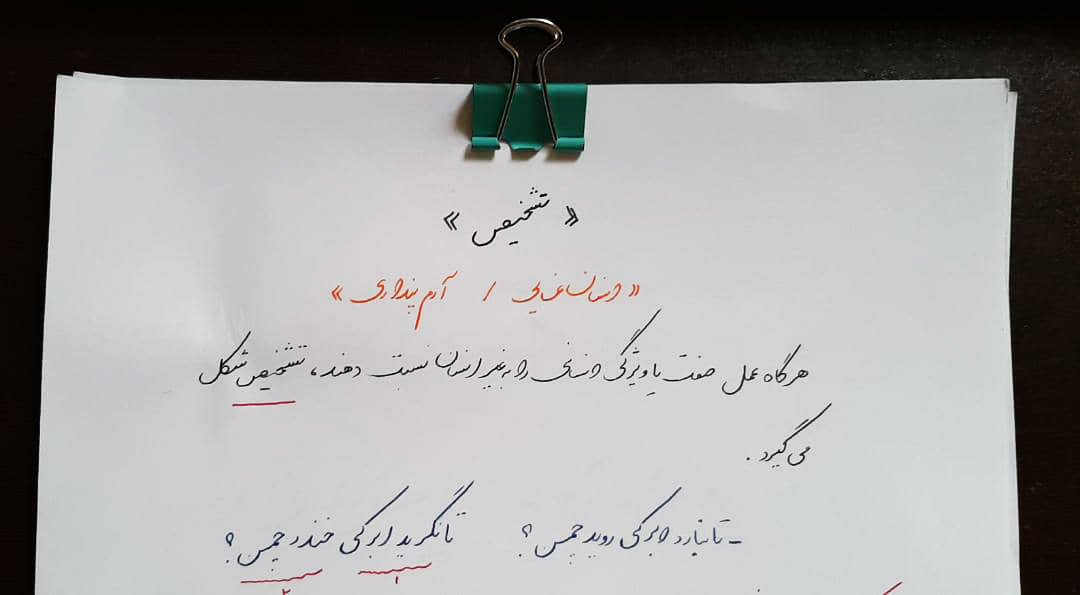 « تشخیص »
« انسان نمایی / آدم پنداری »
هرگاه عمل صفت یا ویژگی انسانی را به غیر انسان نسبت دهند، تشخیص شکل
می گیرد.
- تا نبارد ابر کی روید چمن؟ تا نگرید ابر کی خندد چمن؟
۱ ۲